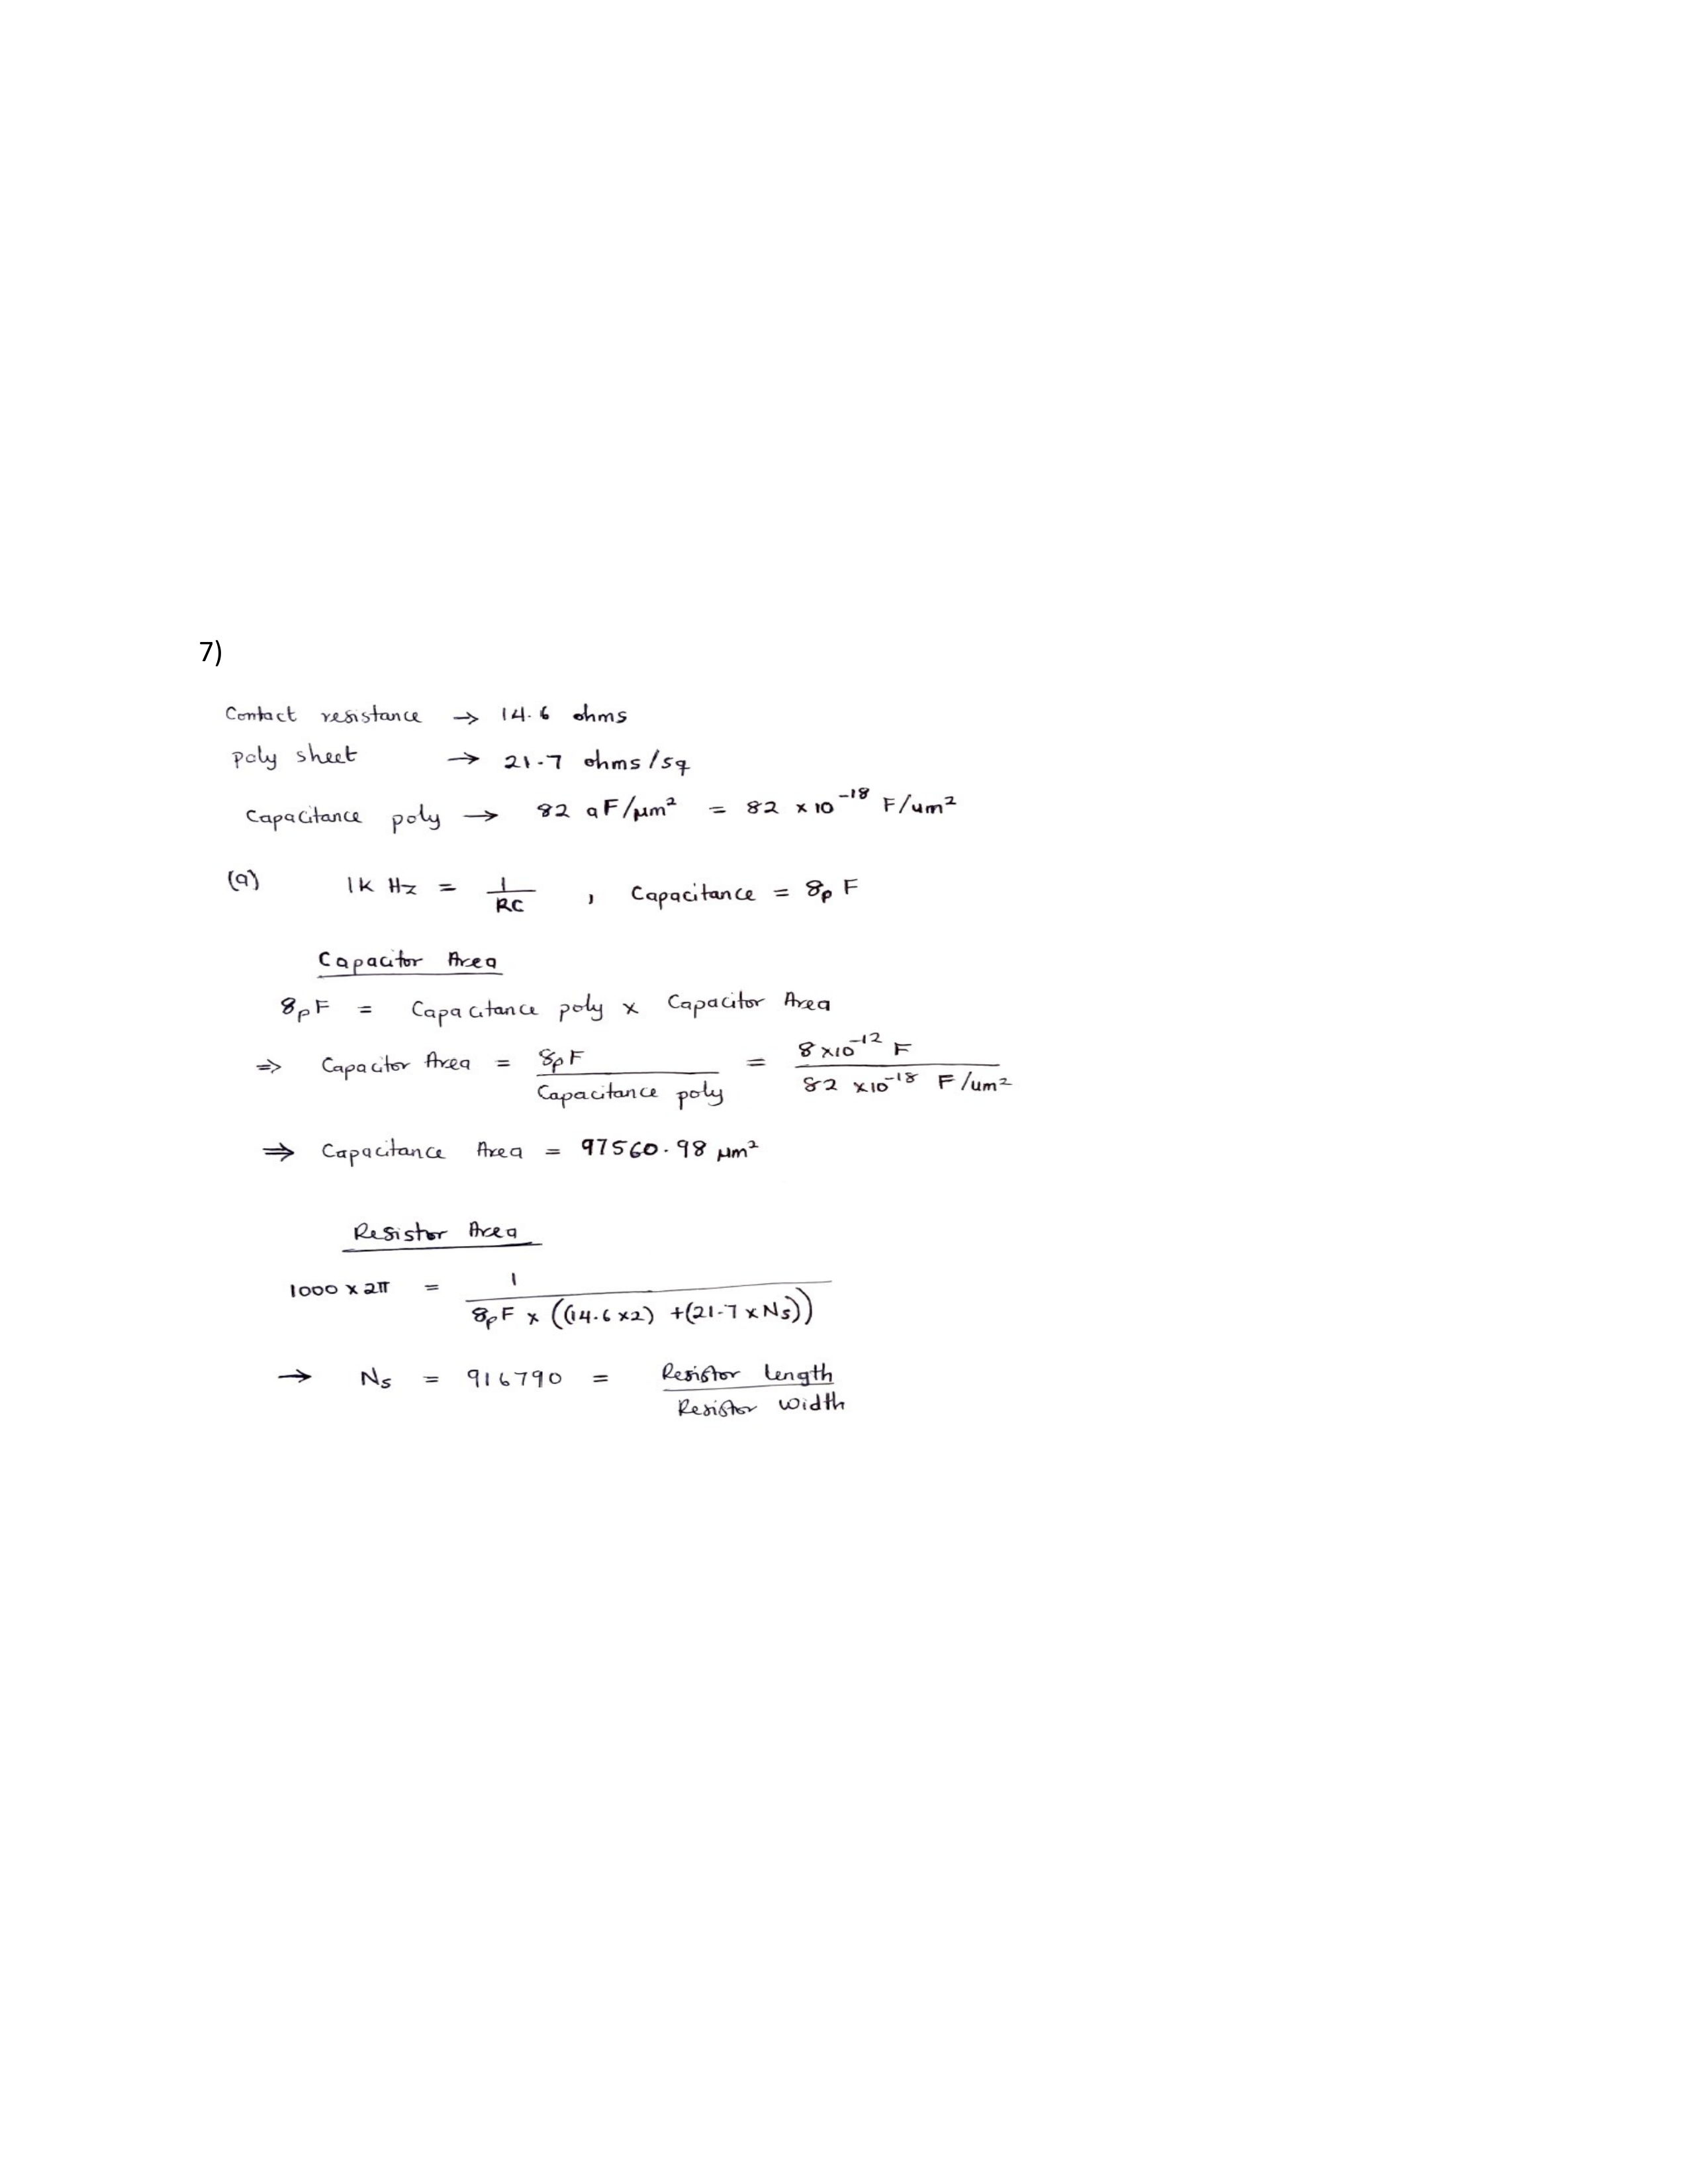 7)
Contact resistance → 14.6 ohms
poly sheet → 21.7 ohms/sq
Capacitance poly → 82 aF/μm² = 82 × 10⁻¹⁸ F/um²
(a) 1K Hz = 1/RC , Capacitance = 8pF
Capacitor Area
8pF = Capacitance poly × Capacitor Area
⇒ Capacitor Area = 8pF / Capacitance poly = 8×10⁻¹² F / 82 ×10⁻¹⁸ F/um²
⇒ Capacitance Area = 97560.98 μm²
Resistor Area
1000 × 2π = 1 / 8pF × ((14.6 ×2) +(21.7 × Ns))
→ Ns = 916790 = Resistor length / Resistor width